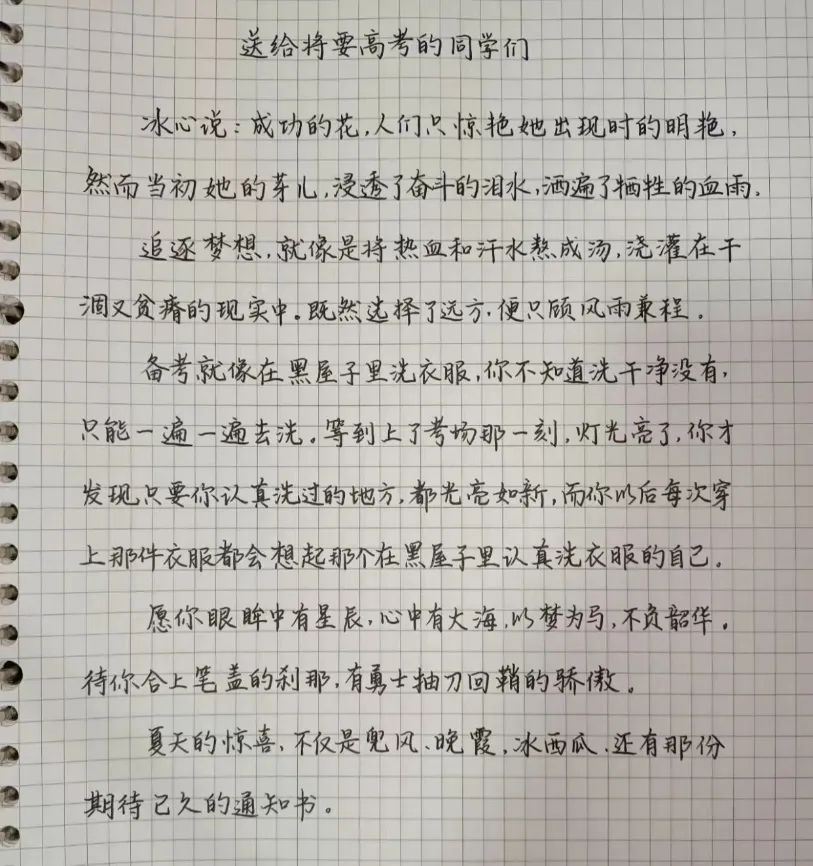 送给将要高考的同学们
冰心说:成功的花,人们只惊艳她出现时的明艳,
然而当初她的芽儿,浸透了奋斗的泪水,洒遍了牺牲的血雨。
追逐梦想,就像是将热血和汗水熬成汤,浇灌在干
涸又贫瘠的现实中。既然选择了远方,便只顾风雨兼程。
备考就像在黑屋子里洗衣服,你不知道洗干净没有,
只能一遍一遍去洗。等到上了考场那一刻,灯光亮了,你才
发现只要你认真洗过的地方,都光亮如新,而你以后每次穿
上那件衣服都会想起那个在黑屋子里认真洗衣服的自己。
愿你眼眸中有星辰,心中有大海,以梦为马,不负韶华。
待你合上笔盖的刹那,有勇士抽刀回鞘的骄傲。
夏天的惊喜,不仅是兜风、晚霞,冰西瓜、还有那份
期待已久的通知书。